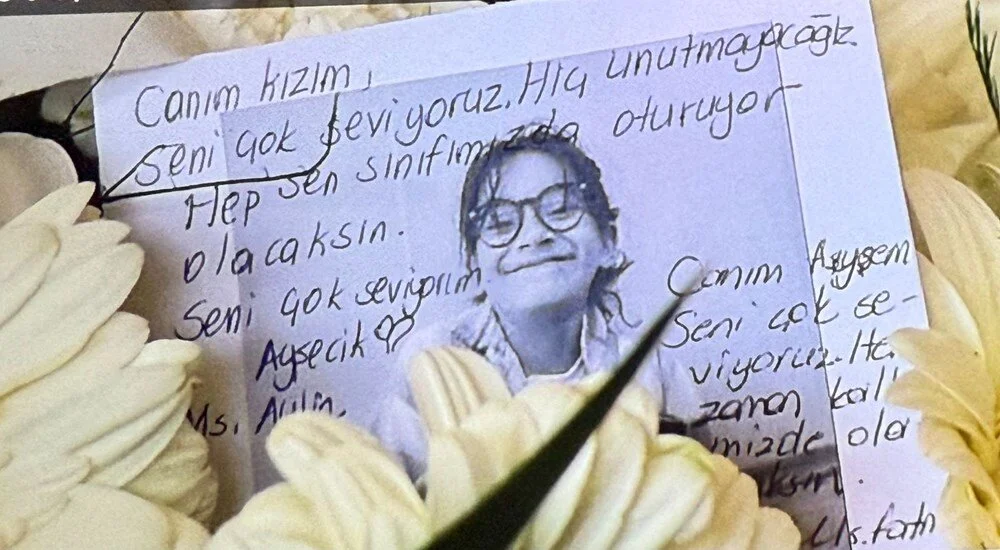 Canım kızım,
Seni çok seviyoruz. Hiç unutmayacağız
Hep sen sınıfımızda oturuyor
olacaksın.
Seni çok seviyorum
Ayşecik
Ms. Aylin.
Canım Ayşem
Seni çok se-
viyoruz. He
zaman kal
mizde ola
ksın.